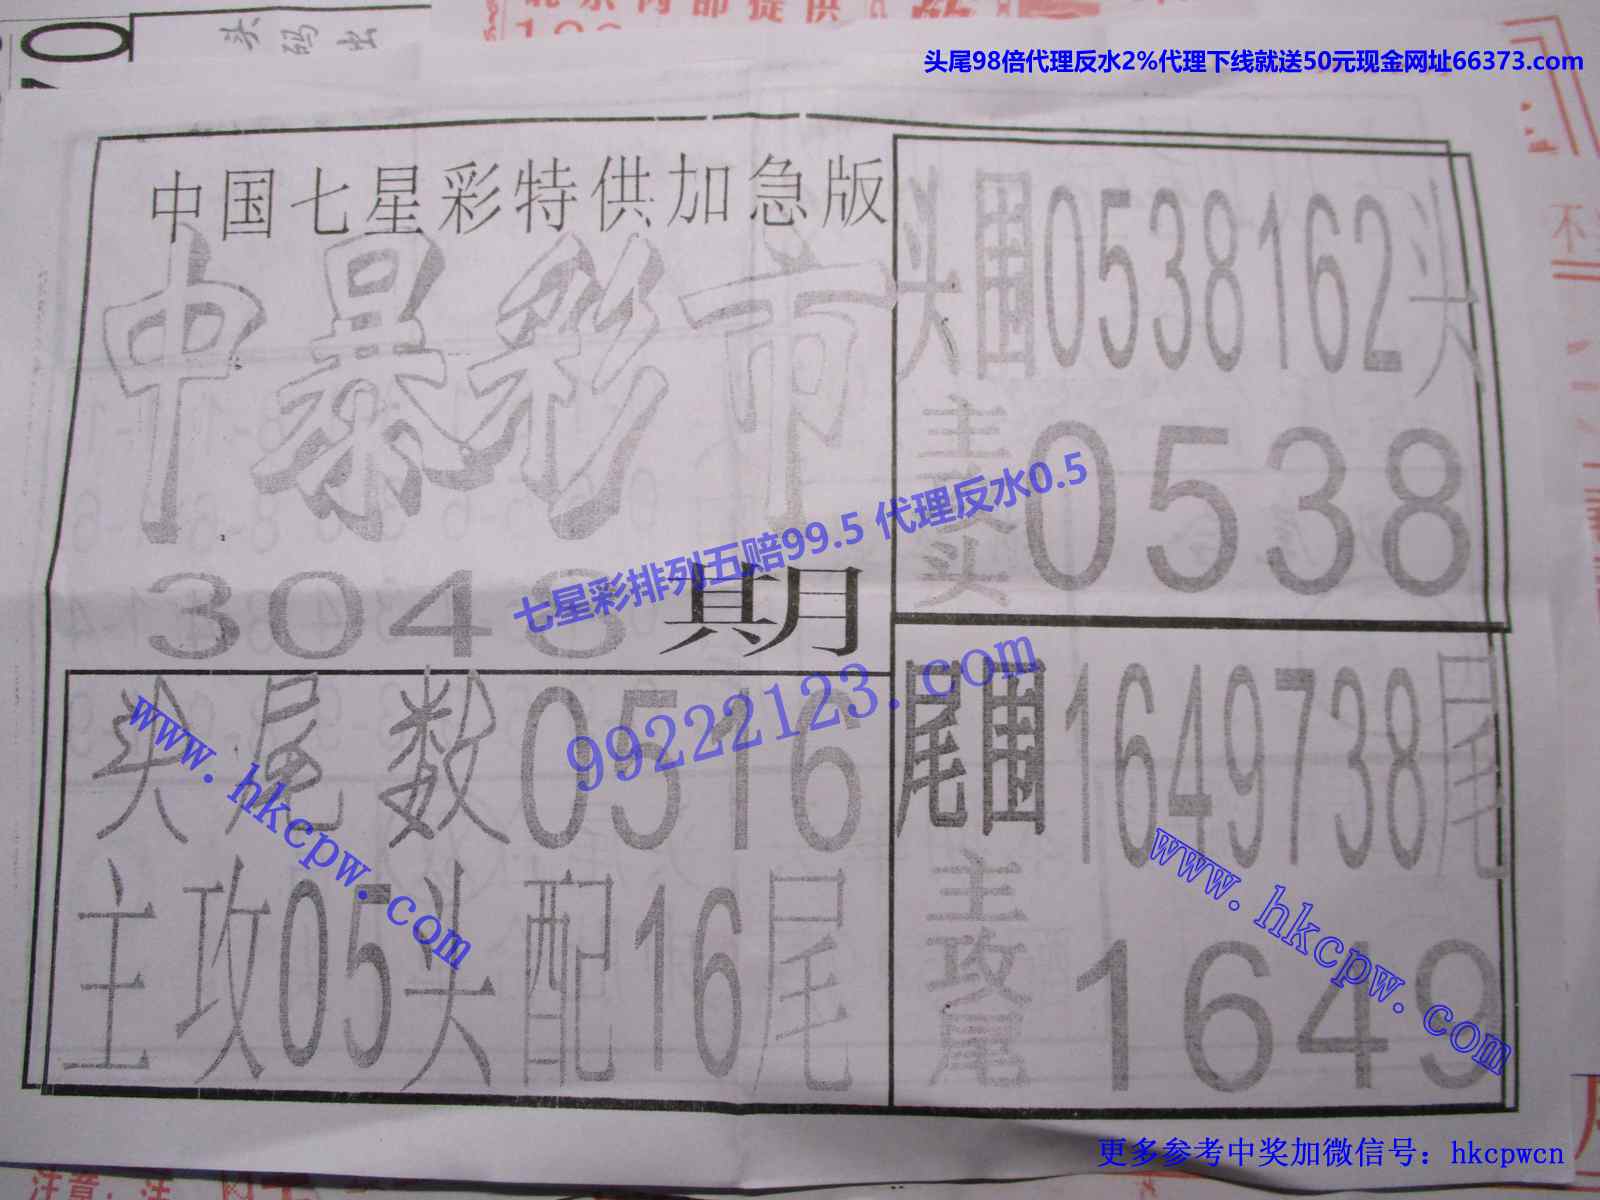 头码出
头尾98倍代理反水2%代理下线就送50元现金网址66373.com
中国七星彩特供加急版
中暴彩市
3048期
头围0538162头
主攻头 0538
七星彩排列五赔99.5 代理反水0.5
99222123.com
头尾数0516
主攻05头配16尾
尾围1649738尾
主攻尾 1649
www.hkcpw.com
www.hkcpw.com
更多参考中奖加微信号：hkcpwcn
注意